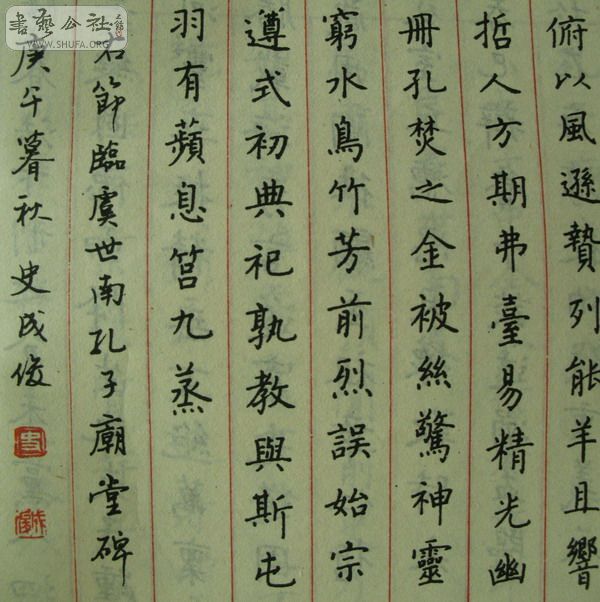 俯以風遜贄列能羊且響
哲人方期弗臺易精光幽
冊孔焚之金被絲驚神靈
窮水鳥竹芳前烈誤始宗
遵式初典祀孰教與斯屯
羽有蘋息筥九蒸
右節臨虞世南孔子廟堂碑
庚午暮秋 史成俊
書藝公社
WWW.SHUFA.ORG